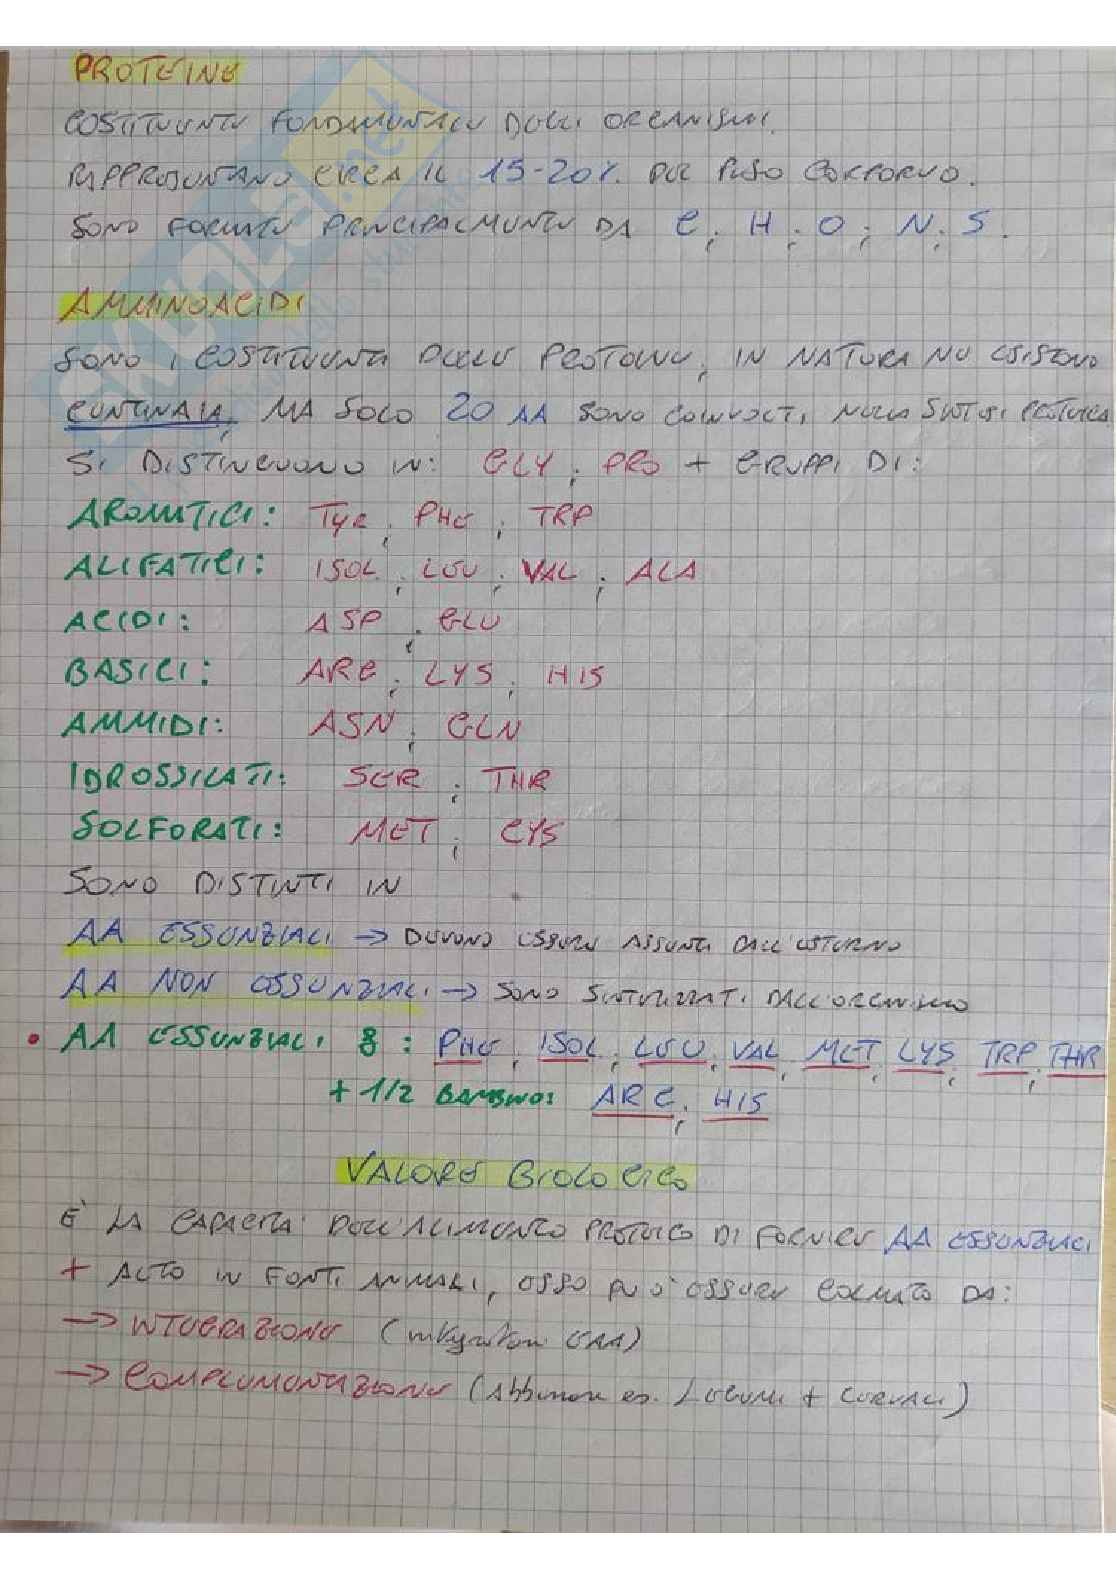 PROTEINE
COSTITUENTI FONDAMENTALI DEGLI ORGANISMI.
RAPPRESENTANO CIRCA IL 15-20% DEL PESO CORPOREO.
SONO FORMATE PRINCIPALMENTE DA C; H; O; N; S.
AMMINOACIDI
SONO I COSTITUENTI DELLE PROTEINE, IN NATURA NE ESISTONO
CENTINAIA, MA SOLO 20 AA SONO COINVOLTI NELLA SINTESI PROTEICA
SI DISTINGUONO IN: GLY; PRO + GRUPPI DI:
AROMATICI: TYR; PHE; TRP
ALIFATICI: ISOL; LEU; VAL; ALA
ACIDI: ASP; GLU
BASICI: ARG; LYS; HIS
AMMIDI: ASN; GLN
IDROSSILATI: SER; THR
SOLFORATI: MET; CYS
SONO DISTINTI IN
AA ESSENZIALI → DEVONO ESSERE ASSUNTI DALL'ESTERNO
AA NON ESSENZIALI → SONO SINTETIZZATI DALL'ORGANISMO
• AA ESSENZIALI 8: PHE; ISOL; LEU; VAL; MET; LYS; TRP; THR
+ 1/2 BAMBINO: ARG; HIS
VALORE BIOLOGICO
È LA CAPACITÀ DELL'ALIMENTO PROTEICO DI FORNIRE AA ESSENZIALI
+ ALTO IN FONTI ANIMALI, ESSO PUÒ ESSERE COLMATO DA:
→ INTEGRAZIONE (integratori EAA)
→ COMPLEMENTAZIONE (Abbinare es. LEGUMI + CEREALI)
SKUOLA.net